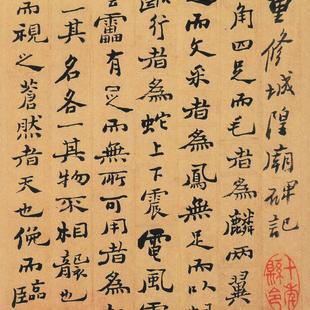 重修城隍廟碑記
角四足而毛者為麟兩翼
足而文采者為鳳無足而以
行者為蛇上下震電風
靁有足而無所可用者為
一其名各一其物不相襲也
而視之蒼然者天也俛而臨